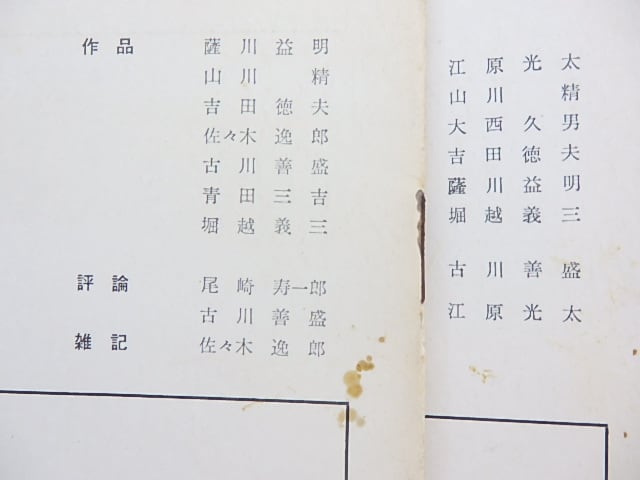 作品 薩川益明
山川精
吉田徳夫
佐々木逸郎
古川善盛
青田三吉
堀越義三
評論 尾崎寿一郎
古川善盛
雑記 佐々木逸郎
江原光太
山川精
大西久男
吉田徳夫
薩川益明
堀越義三
古川善盛
江原光太